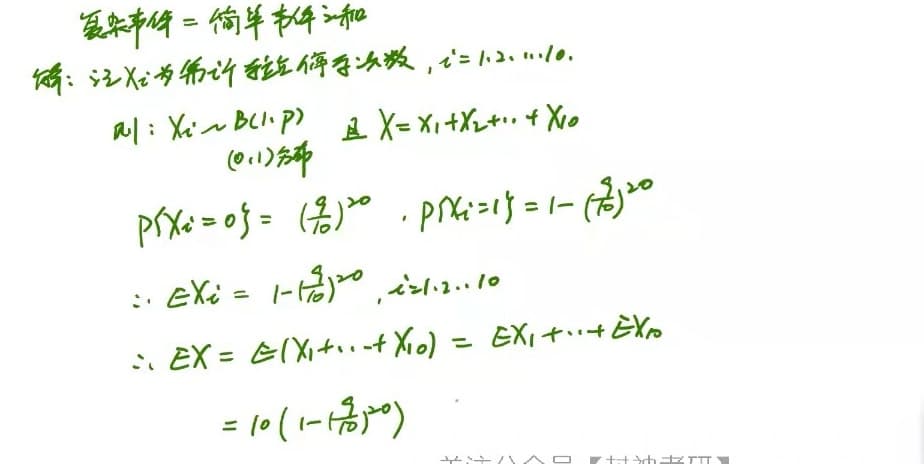 复杂事件 = 简单事件之和
解: 记Xi为第i个车站停车次数, i=1.2.…10.
则: Xi ~ B(1.P) 且 X = X1+X2+…+ X10
(0.1)分布
P{Xi=0} = (9/10)^20 . P{Xi=1} = 1-(9/10)^20
∴ EXi = 1-(9/10)^20 , i=1.2..10
∴ EX = E(X1+...+X10) = EX1+…+EX10
= 10(1-(9/10)^20)